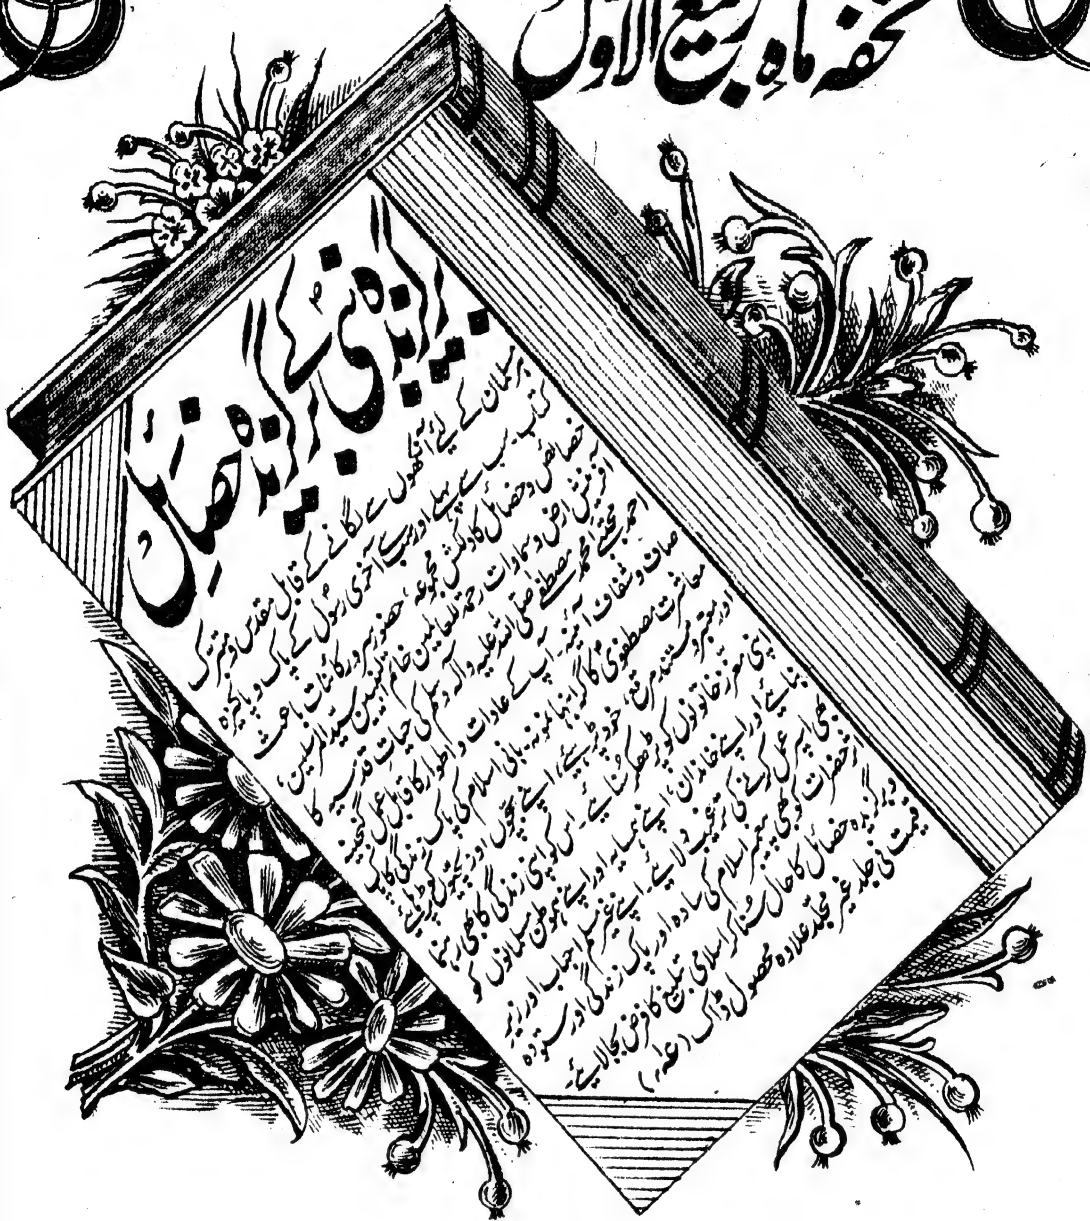 تحفہ ماہِ ربیع الاول
برگزیدہ نبیؐ کے برگزیدہ خصائل
مسلمان کے لیے آنکھوں سے لگانے کے قابل مقدس و متبرک
کتاب۔ سب سے پہلے اور سب سے آخری رسول کے پاک و پاکیزہ
خصائص و خصائل کا دلکش مجموعہ، حضور سرور کائنات باعث
آفرینش ارض و سماوات رحمۃ للعالمین خاتم النبیین سید المرسلین،
احمد مجتبےٰ محمد مصطفےٰ صلی اللہ علیہ والہ وسلم کی حیات قدسیہ کا
صاف و شفاف آئینہ۔ آپ کے عادات و اطوار کا قابل عمل گنجینہ
معاشرت مصطفویؐ کا گرانبہا نمونہ۔ بانی اسلام کی پاک زندگی کا پاک
اور معتبر و مستند مرقع، خود پڑھیے، اپنے بچوں اور بچیوں کو پڑھائیے
اپنی معزز خاتونوں کو پڑھکر سُنائیے۔ اس کو اپنی زندگی کا بھی رہنما
بنائیے اور اپنے خاندان، اپنے ہمسایہ اور اپنے ہموطن مسلمانوں کو
بھی اسپر عمل کرنے کی ترغیب دلائیے۔ اپنے غیر مسلم احباب اور زیر
حضرات کو بھی پیغمبر اسلام کی سادہ اور پاک زندگی اور ستودہ
و برگزیدہ خصائل کا حال سُنا کر اسلامی تبلیغ کا فرض بجا لائیے۔
قیمت فی جلد غیر مجلد علاوہ محصول ڈاک